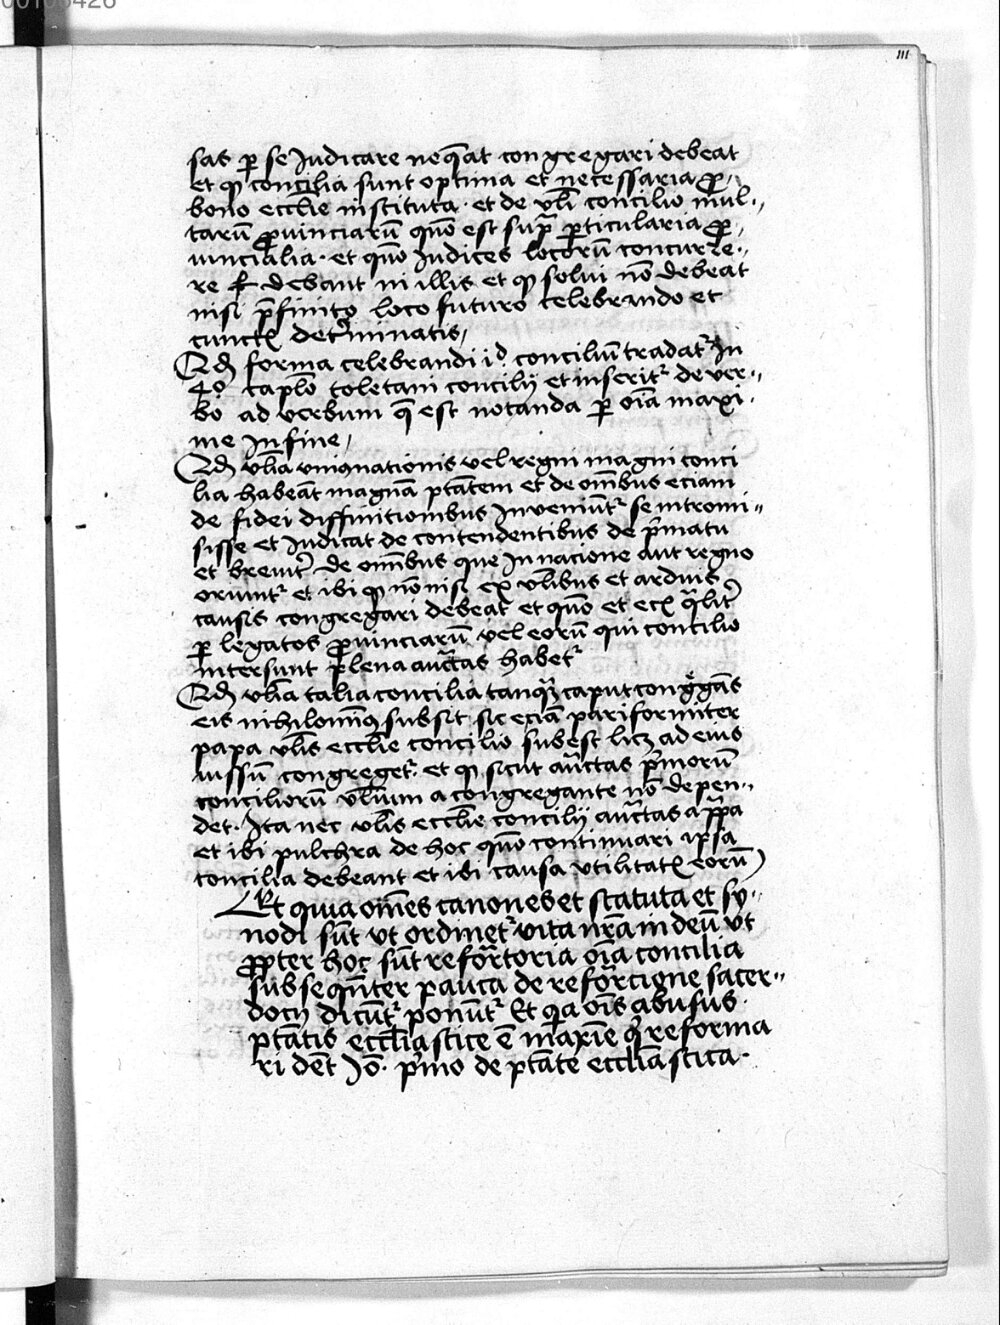 00106426
III
sas ꝑ se Judicare neq̄at congregari debeat
et ꝙ concilia sunt optima et necessaria ꝓ
bono ecclīe instituta· et de vlī concilio mul„
tarū ꝓuinciarū quō est sup̄ ꝑticularia ꝓ„
uincialia· et quō Judices locorū concurre„
re debeant in illis et ꝙ solui nō debeat
nisi p̄finito loco futuro celebrando et
cunctꝭ det̓minatis/
Qd forma celebrandi id concilīu tradat᷑ In
4º caplō toletani concilij et inserit᷑ de ver„
bo ad verbum q̄ est notanda ꝑ oīa maxi
me In fine/
Qd vlīa vniꝰ nationis vel regni magni conci
lia habeāt magnā ptātem et de om̄ibus eciam
de fidei diffinitionibus Inveniūt᷑ se intromi„
sisse et Judicāt de contendentibus de p̄matu
et breuit̓ de om̄ibus que In nacione aut regno
oriunt᷑ et ibi ꝙ nō nisi ex vlībus et arduis
causis congregari debeāt et quō et ecꝭ q̄lit̓
ꝑ legatos ꝓuinciarū vel eorū qui concilio
intersunt plena auctās habet᷑
Qd vlīa talia concilia tanqꝫ caput congˀgās
eis nihilominꝰ subsit sic eciā pariformiter
papa vlīs ecclīe concilio subest licꝫ ad eius
iussū congreget᷑· et ꝙ sicut auctās p̄morū
conciliorū vlīum a congregante nō depen„
det· Ita nec vlīs ecclīe concilij auctās a papa
et ibi pulchra de hoc quō continuari ipsa
concilia debeant et ibi causa vtilitatꝭ eorū
Et quia om̄es canones et statuta et sy„
nodi sūt vt ordinet᷑ vita nr̄a in deū vt
ꝓpter hoc sūt refor̄toria oīa concilia
subseqn̄ter pauca de refor̄cione sacer„
docij dicūt᷑ ponūt᷑ Et qa oīs abusus
ptātis eccl̄iastice ē maxīe reforma
ri dēt Iō· p̓mo de ptāte eccl̄iastica·